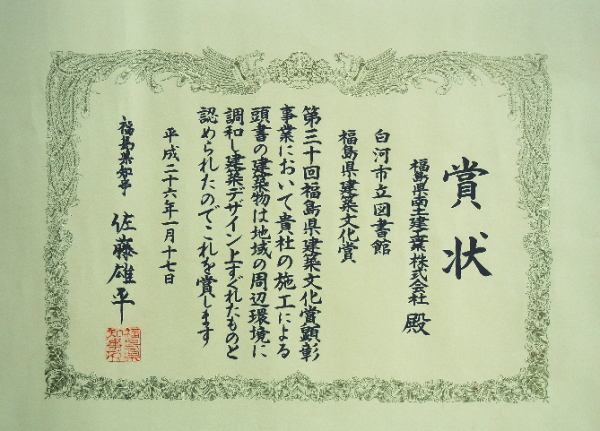 賞状
福島県南土建工業株式会社 殿
白河市立図書館
福島県建築文化賞
第三十回福島県建築文化賞顕彰
事業において貴社の施工による
頭書の建築物は地域の周辺環境に
調和し建築デザイン上すぐれたものと
認められたのでこれを賞します
平成二十六年一月十七日
福島県知事 佐藤雄平
福島県
知事之印